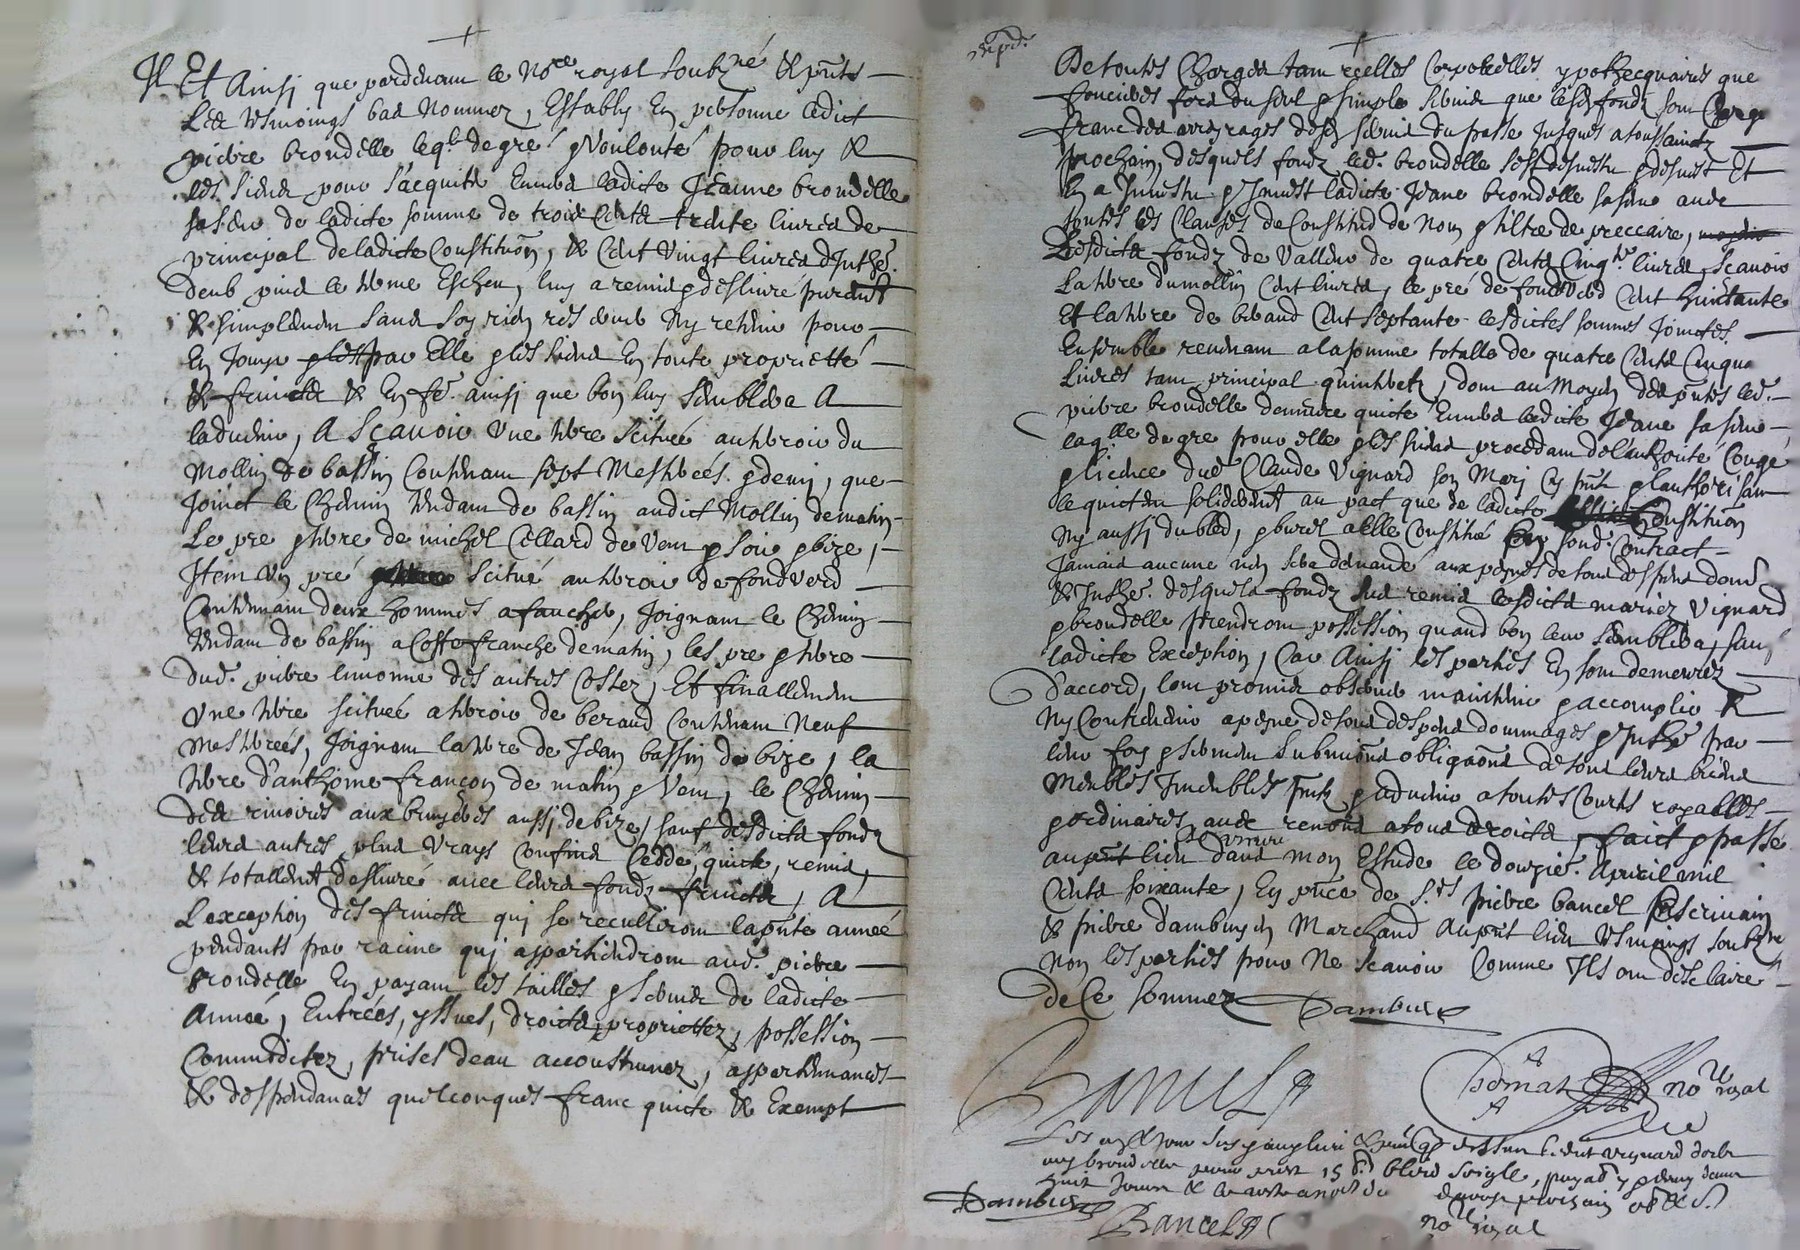 Et Ainsj que pardevant le No.re royal soubz.né & p.nts
Les tesmoings bas Nommez, Estably En personne ledict
pierre brondelle leq.l de gré & Voulonté pour luy &
les siens pour s'acquiter Envers ladicte Jeanne brondelle
sa seur de ladicte somme de trois Cents trente livres de
principal de ladicte Constitu.on, & Cent Vingt livres d'Inthe.
deub puis le terme Escheu, luy a remis & deslivré purem.t
& simplement sans soy rien res erver Ny retenir pour
En Jouyr par Elle & les siens En toute proprietté
& fruicts & En f.e ainsj que bon luy semblera A
ladvenir, A Sçavoir Une terre scituée au terroir du
Mollin de bassin Contenant sept Mesterées & demj, que
Joinct le Chemin tendant de bassin audict Mollin de matin
Le pre & terre de michel Cellard de Vent & soir & bize,
Item Un pré scitué au terroir de fondverd
Contenant deux hommes a faucher, Joignant le Chemin
tendant de bassin a Coste franche de matin, les pre & terre
dud. pierre limonne des autres Costez, Et finallement
Une terre scituée a terroir de beraud Contenant Neuf
Mesterées, Joignant la terre de Jean bassin de bize, la
terre d'anthoine françon de matin & Vent, le Chemin
des rivoires aux bruyeres aussj de bize, sauf desdicts fondz
leurs autres plus Vrays Confins Cedde, quicte, remis,
& totallem.t deslivré avec leurs fondz fruicts, A
L'exception des fruicts quj se recullieront la p.nte année
pendants par racine quj appartiendront aud. pierre
brondelle En payant les tailles & servis de ladicte
Année, Entrées, yssues, droicts, propriettez, possession
Commoditez, prises d'eau accoustumez, appartenances
& despendances quelconques franc quicte & Exempt
De toutes Charges tant reelles Corporelles ypothecquaires que
foncieres fors du seul & simple servis que lesd. fondz sont
franc des arrerages desd. servis du passe Jusques a toussainctz
prochain, desquels fondz led. brondelle s'est desmestu & desmest Et
En a Jnvestu & Jnvest ladicte Jeane brondelle sa seur avec
toutes les Clauses de Constitud de Nom & tiltre de preccaire,
Lesdicts fondz de Valleur de quatre Cents Cinq.te livres, Sçavoir
La terre du mollin Cent livres, le pré de fondverd Cent huictante
Et la terre de beraud Cent septante lesdictes sommes Joinctes
Ensemble revenant a la somme totalle de quatre Cents Cinqu.
Livres tant principal qu'intheretz, dont au Moyen des p.ntes led.
pierre brondelle demeure quicte Envers ladicte Jeane sa seur
laq.lle de gre pour elle & les siens procedant de l'authorité Congé
& licence dud. Claude Vignard son Marj Cy p.nt & l'authorisant
le quicte soliderem.t au pact que de ladicte Constitu.on
Ny aussj du bled, & buret a elle Constitué fond. Contract
Jamais aucune rien sera demandé aux peynes de tous despens dom.
& Inthe. desquels fondz sus remis lesdicts mariez Vignard
& brondelle prendront possession quand bon leur semblera, sauf
ladicte Exception, Car Ainsj les parties En sont demeurez
d'accord, l'ont promis observer maintenir & accomplir &
Ny Contrevenir a peyne de tous despens dommages & Inthe. par
leur foy & serment submi.ons & obliga.ons de tous leurs biens
Meubles Immeubles p.ntz & advenir a toutes Courts royalles
& ordinaires avec renon.s a tous droicts, faict & passé
au p.nt lieu dans Mon Estude le douzie. Apvril mil
Cents soixante, En p.nce de S.rs pierre bancel Escrivain
& pierre dambuyen Marchand Au p.nt lieu tesmoings soubz.nez
non les parties pour Ne Scavoir Comme Ils ont desclaire
de Ce sommez Dambuen
Bancel
no.re royal
Dambuen
Bancel
no.re royal